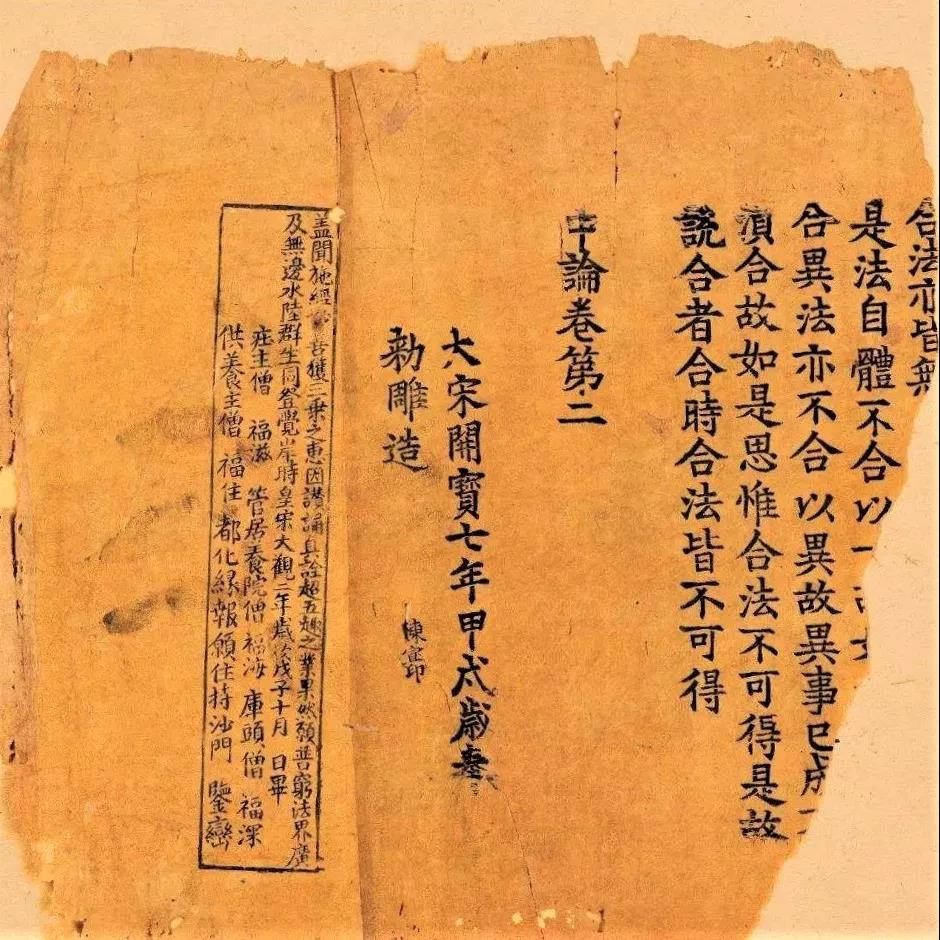 合法亦皆無
是法自體不合以一故
合異法亦不合以異故異事已成不
須合故如是思惟合法不可得是故
説合者合時合法皆不可得
中論卷第二
大宋開寳七年甲戌歲奉
勑雕造
陳宻印
盖聞施經妙善獲三乗之惠因讃誦真詮超五趣之業果然願普窮法界廣
及無邊水陸群生同登覺岸時皇宋大觀二年歲次戊子十月 日畢
庄主僧 福滋 管居養院僧 福海 庫頭僧 福深
供養主僧 福住 都化縁報願住持沙門 鑒巒